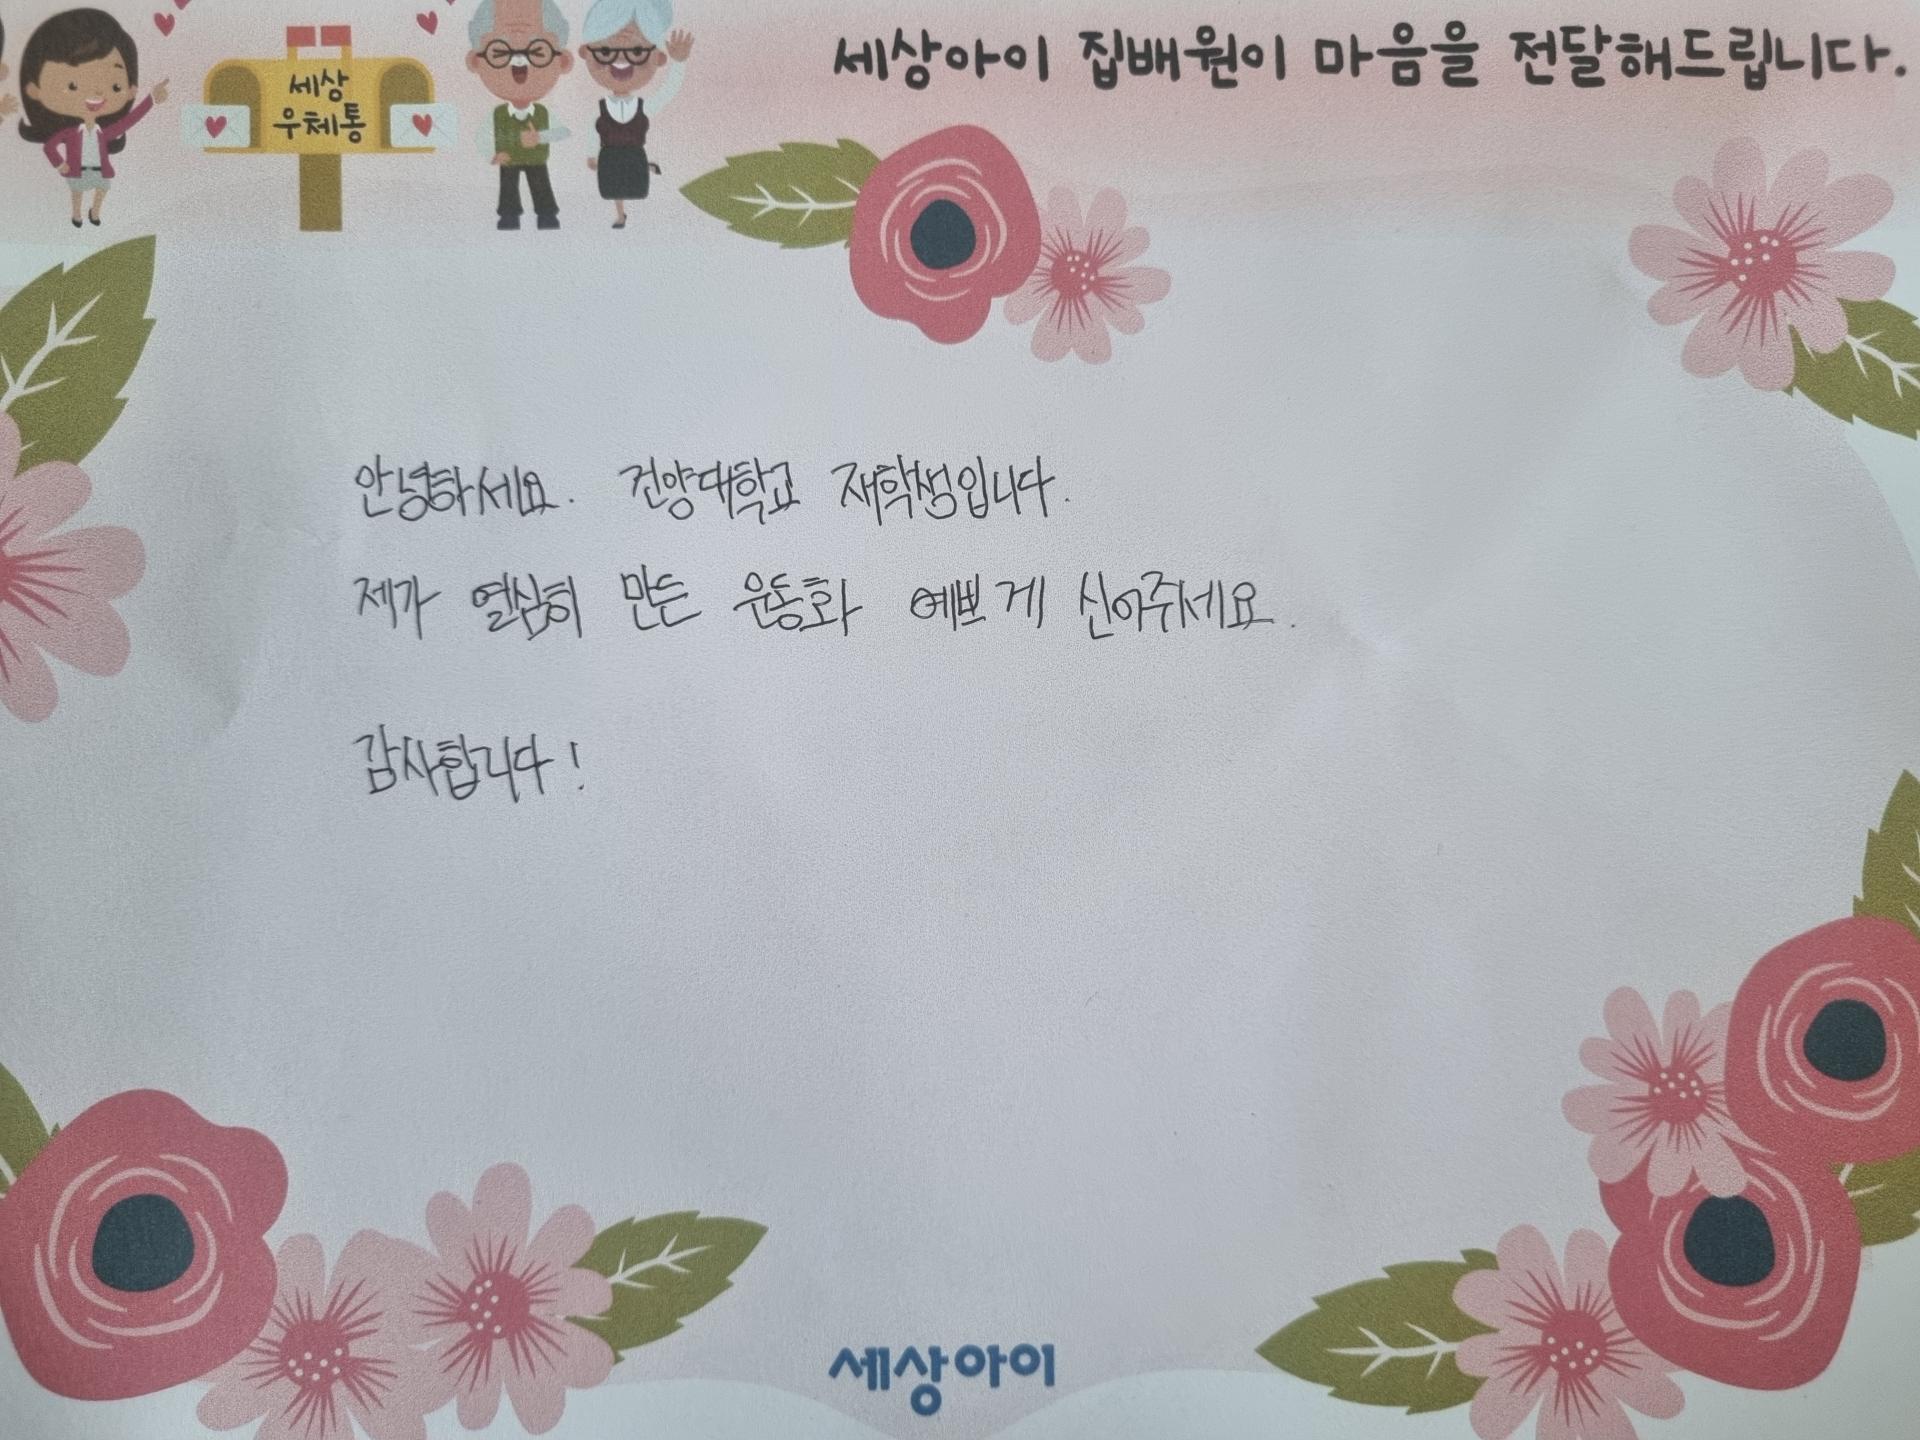 세상아이 집배원이 마음을 전달해드립니다.
세상
우체통
안녕하세요. 건양대학교 재학생입니다.
제가 열심히 만든 운동화 예쁘게 신어주세요.
감사합니다!
세상아이